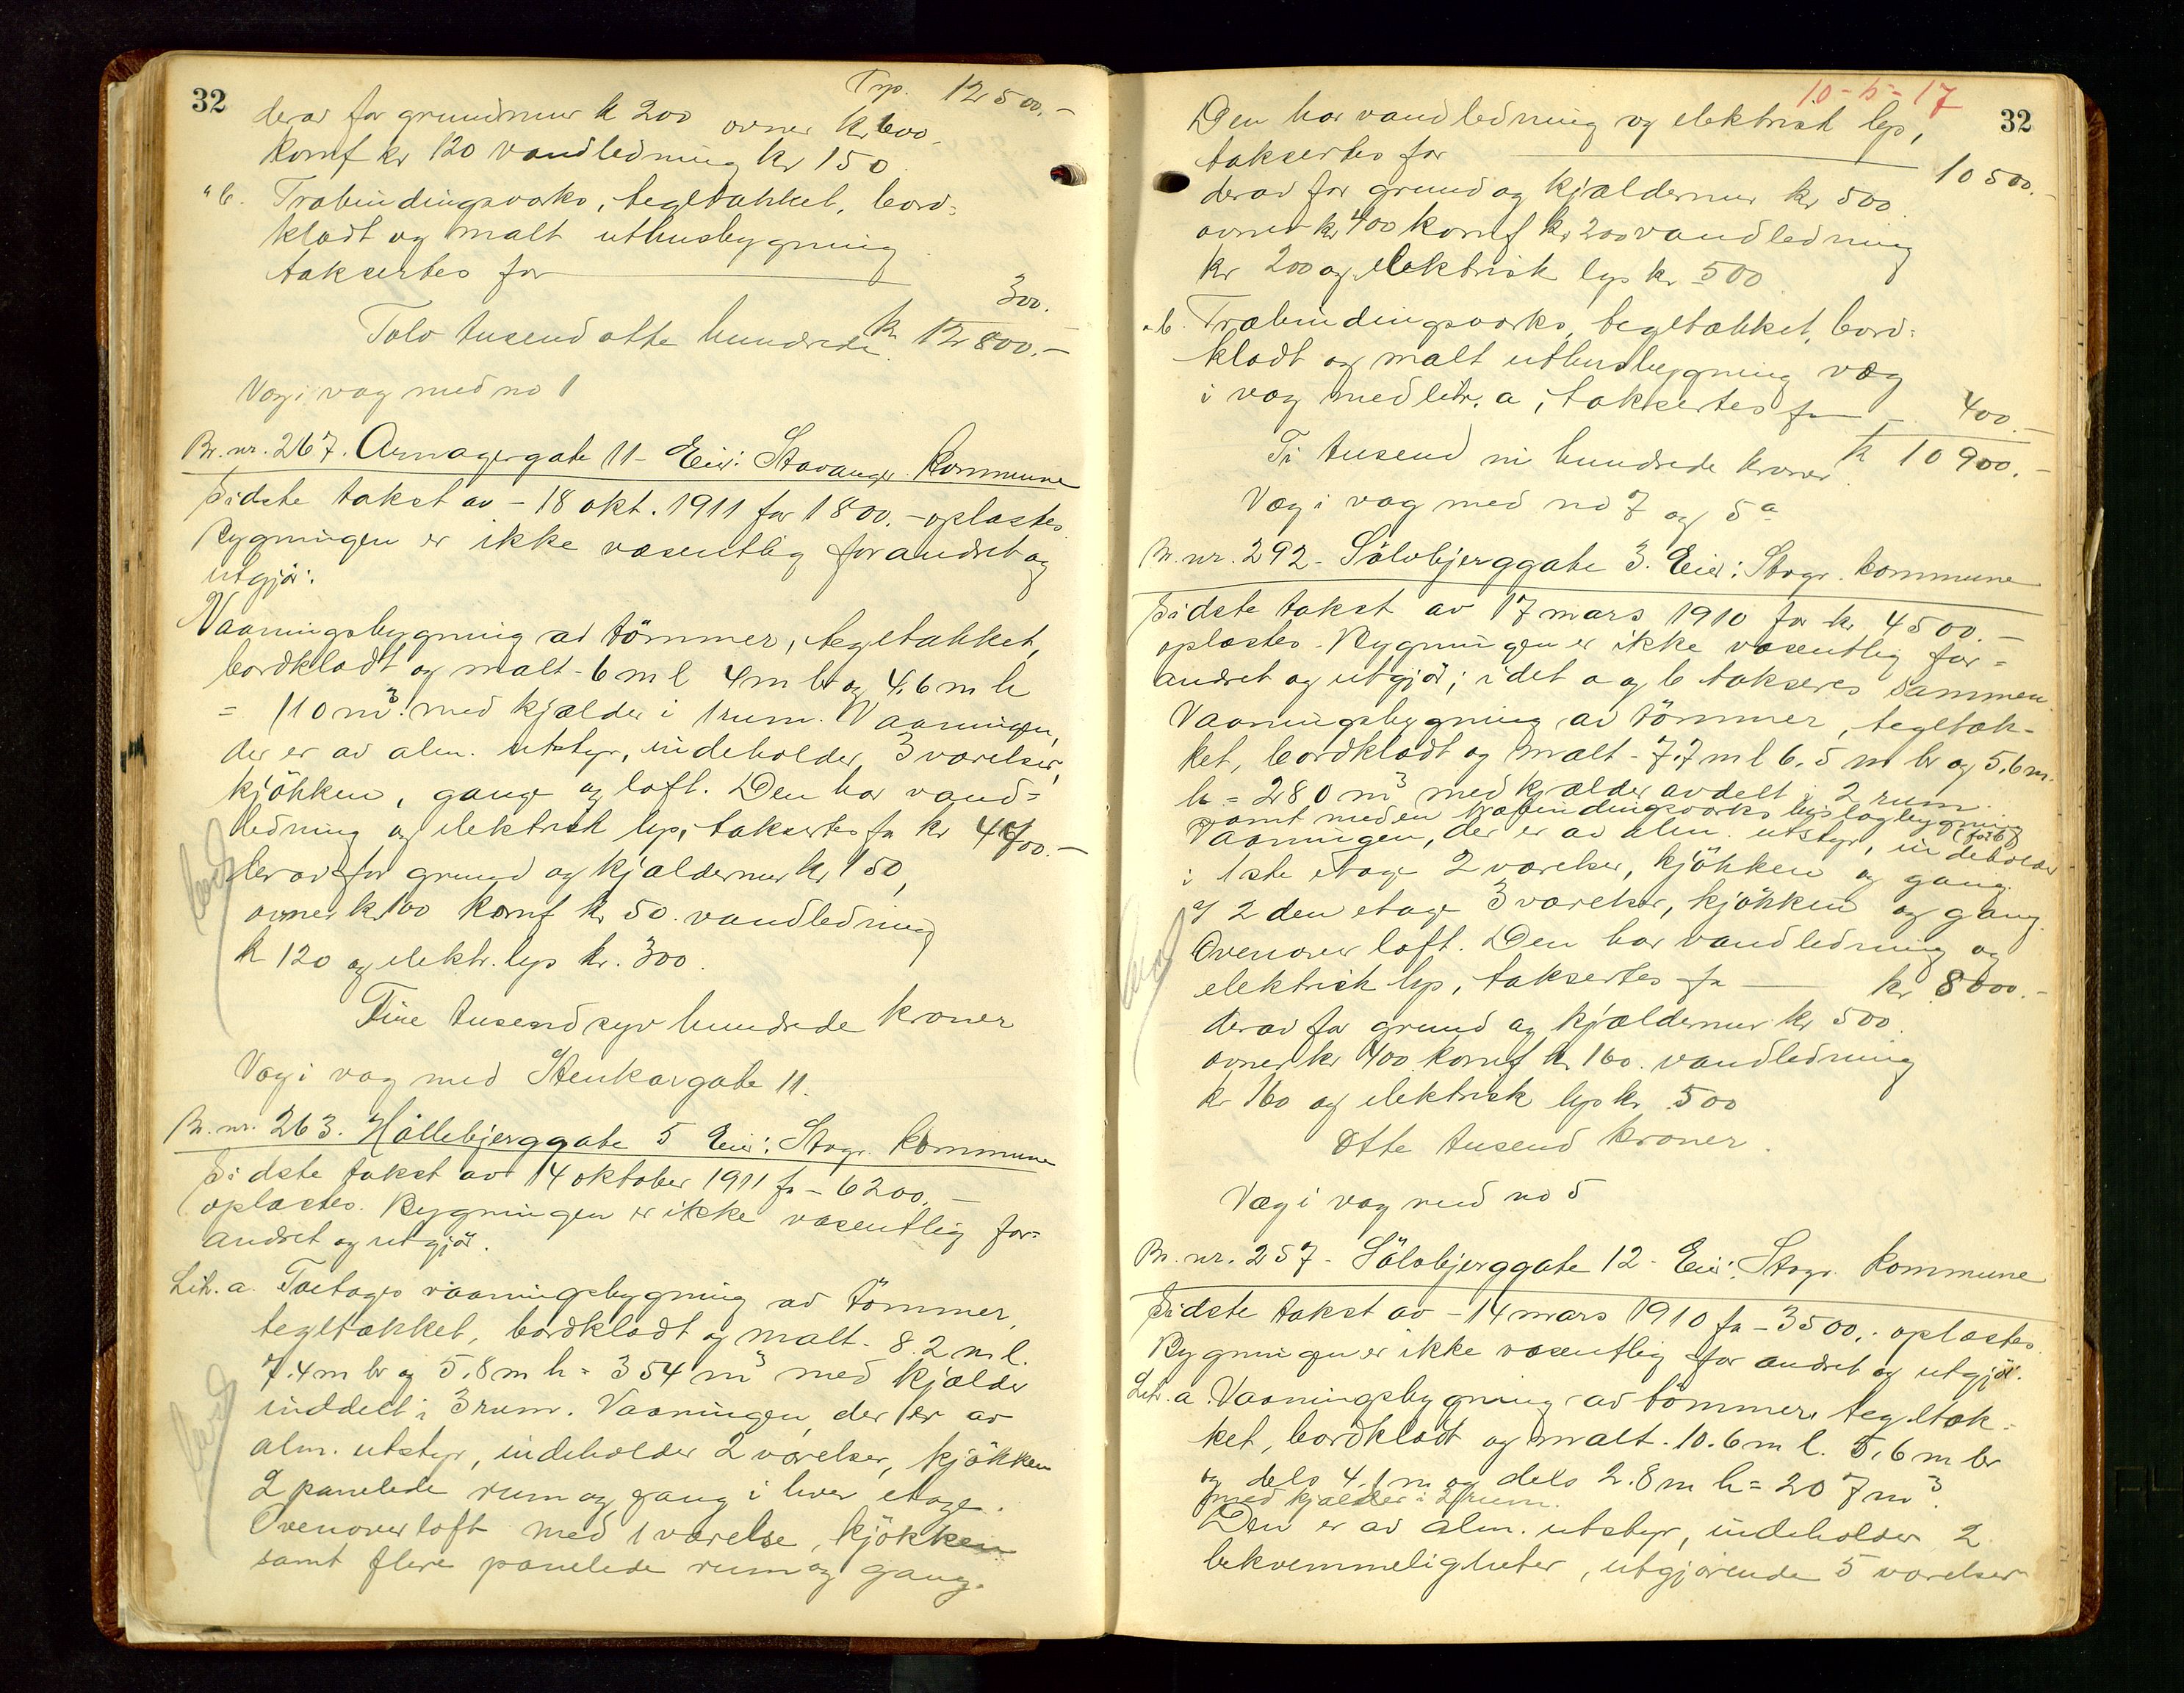 32
Trp. 12500.-
derav for grundmur kr 200 ovner kr 600.
komf kr 120 vandledning kr 150.
" b. Træbindingsverks, tegltækket, bord-
klædt og malt uthusbygning
taksertes for 300.
Tolv tusend otte hundrede kr 12800.-
Væg i væg med no 1
Br. nr. 267. Armagergate 11 - Eier: Stavanger kommune
Sidste takst av - 18 okt. 1911 for 1800.- oplæstes.
Bygningen er ikke væsentlig forandret og
utgjør:
Vaaningsbygning av tömmer, tegltækket,
bordklædt og malt - 6 m l 4 m br og 4,6 m h
= 110 m³. med kjælder i 1 rum. Vaaningen,
der er av alm. utstyr, indeholder 3 værelser,
kjökken, gange og loft. Den har vand-
ledning og elektrisk lys, taksertes for kr 4700.-
derav for grund og kjældermur kr 150,
ovner kr 100 komf kr 50. vandledning
kr 120 og elektr. lys kr. 300.
Fire tusend syv hundrede kroner
Væg i væg med Stenkargate 11.
Br. nr. 263. Hållebjerggate 5 Eier: Stvgr. kommune
Sidste takst av 14 oktober 1911 for - 6200.-
oplæstes. Bygningen er ikke væsentlig for-
andret og utgjör.
Litr. a. Toetages vaaningsbygning av tömmer,
tegltækket, bordklædt og malt. 8.2 m l.
7.4 m br og 5.8 m h = 354 m³ med kjælder
inddelt i 3 rum. Vaaningen, der er av
alm. utstyr, indeholder 2 værelser, kjökken
2 panelede rum og gang i hver etage.
Ovenover loft med 1 værelse, kjökken
samt flere panelede rum og gang.
10-5-17
32
Den har vandledning og elektrisk lys,
taksertes for 10500.-
derav for grund og kjældermur kr 500
ovner kr 400 komf kr 200 vandledning
kr 200 og elektrisk lys kr 500
" b. Træbindingsverks, tegltækket, bord-
klædt og malt uthusbygning væg
i væg med litr. a, taksertes for - 400.-
Ti tusend ni hundrede kroner kr 10900.-
Væg i væg med no 7 og 5a
Br. nr. 292 - Sölvbjerggate 3. Eier: Stvgr. kommune
Sidste takst av 17 mars 1910 for kr. 4500.-
oplæstes. Bygningen er ikke væsentlig for-
andret og utgjör; idet a og b takseres sammen.
Vaaningsbygning av tömmer, tegltæk-
ket, bordklædt og malt - 7.7 m l 6.5 m br og 5.6 m.
h = 280 m³ med kjælder avdelt i 2 rum.
samt med en træbindingsverks bislagbygning
(för b)
Vaaningen, der er av alm. utstyr, indeholder
i 1ste etage 2 værelser, kjökken og gang.
I 2den etage 3 værelser, kjökken og gang.
Ovenover loft. Den har vandledning og
elektrisk lys, taksertes for kr 8000.-
derav for grund og kjældermur kr 500.
ovner kr 400 komf kr 160. vandledning
kr 160 og elektrisk lys kr 500
Otte tusend kroner.
Væg i væg med no 5
Br. nr. 257 - Sölvbjerggate 12 - Eier: Stvgr. kommune
Sidste takst av - 14 mars 1910 for - 3500.- oplæstes.
Bygningen er ikke væsentlig forandret og utgjör.
Litr. a. Vaaningsbygning av tömmer, tegltæk-
ket, bordklædt og malt. 10.6 m l. 5.6 m br
og dels 4.1 m og dels 2.8 m h = 207 m³.
med kjælder i 2 rum.
Den er av alm. utstyr, indeholder 2
bekvemmeligheter, utgjörende 5 værelser